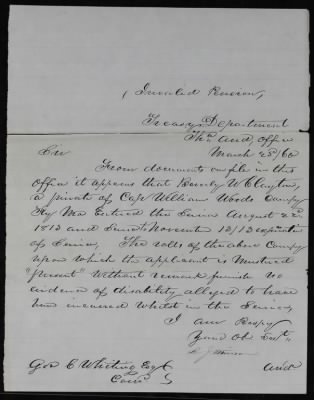 (Invalid Pension,
Treasury Department
Thd Aud, Office
March 23d/60
Sir
From documents on file in this
Office it appears that Beverly W Clayton,
a private of Capt William Woods Compy
Ky Ma Entered the Service August 22d
1813 and Served to November 13/13 expiration
of Service, The rolls of the above Compy
upon which the applicant is Mustered
"present" Without remark furnish no
evidence of disability alleged to have
been incurred whilst in the Service,
I am Respy
Your Ob Svt.,
Geo C Whiting Esq
Coms
Aud